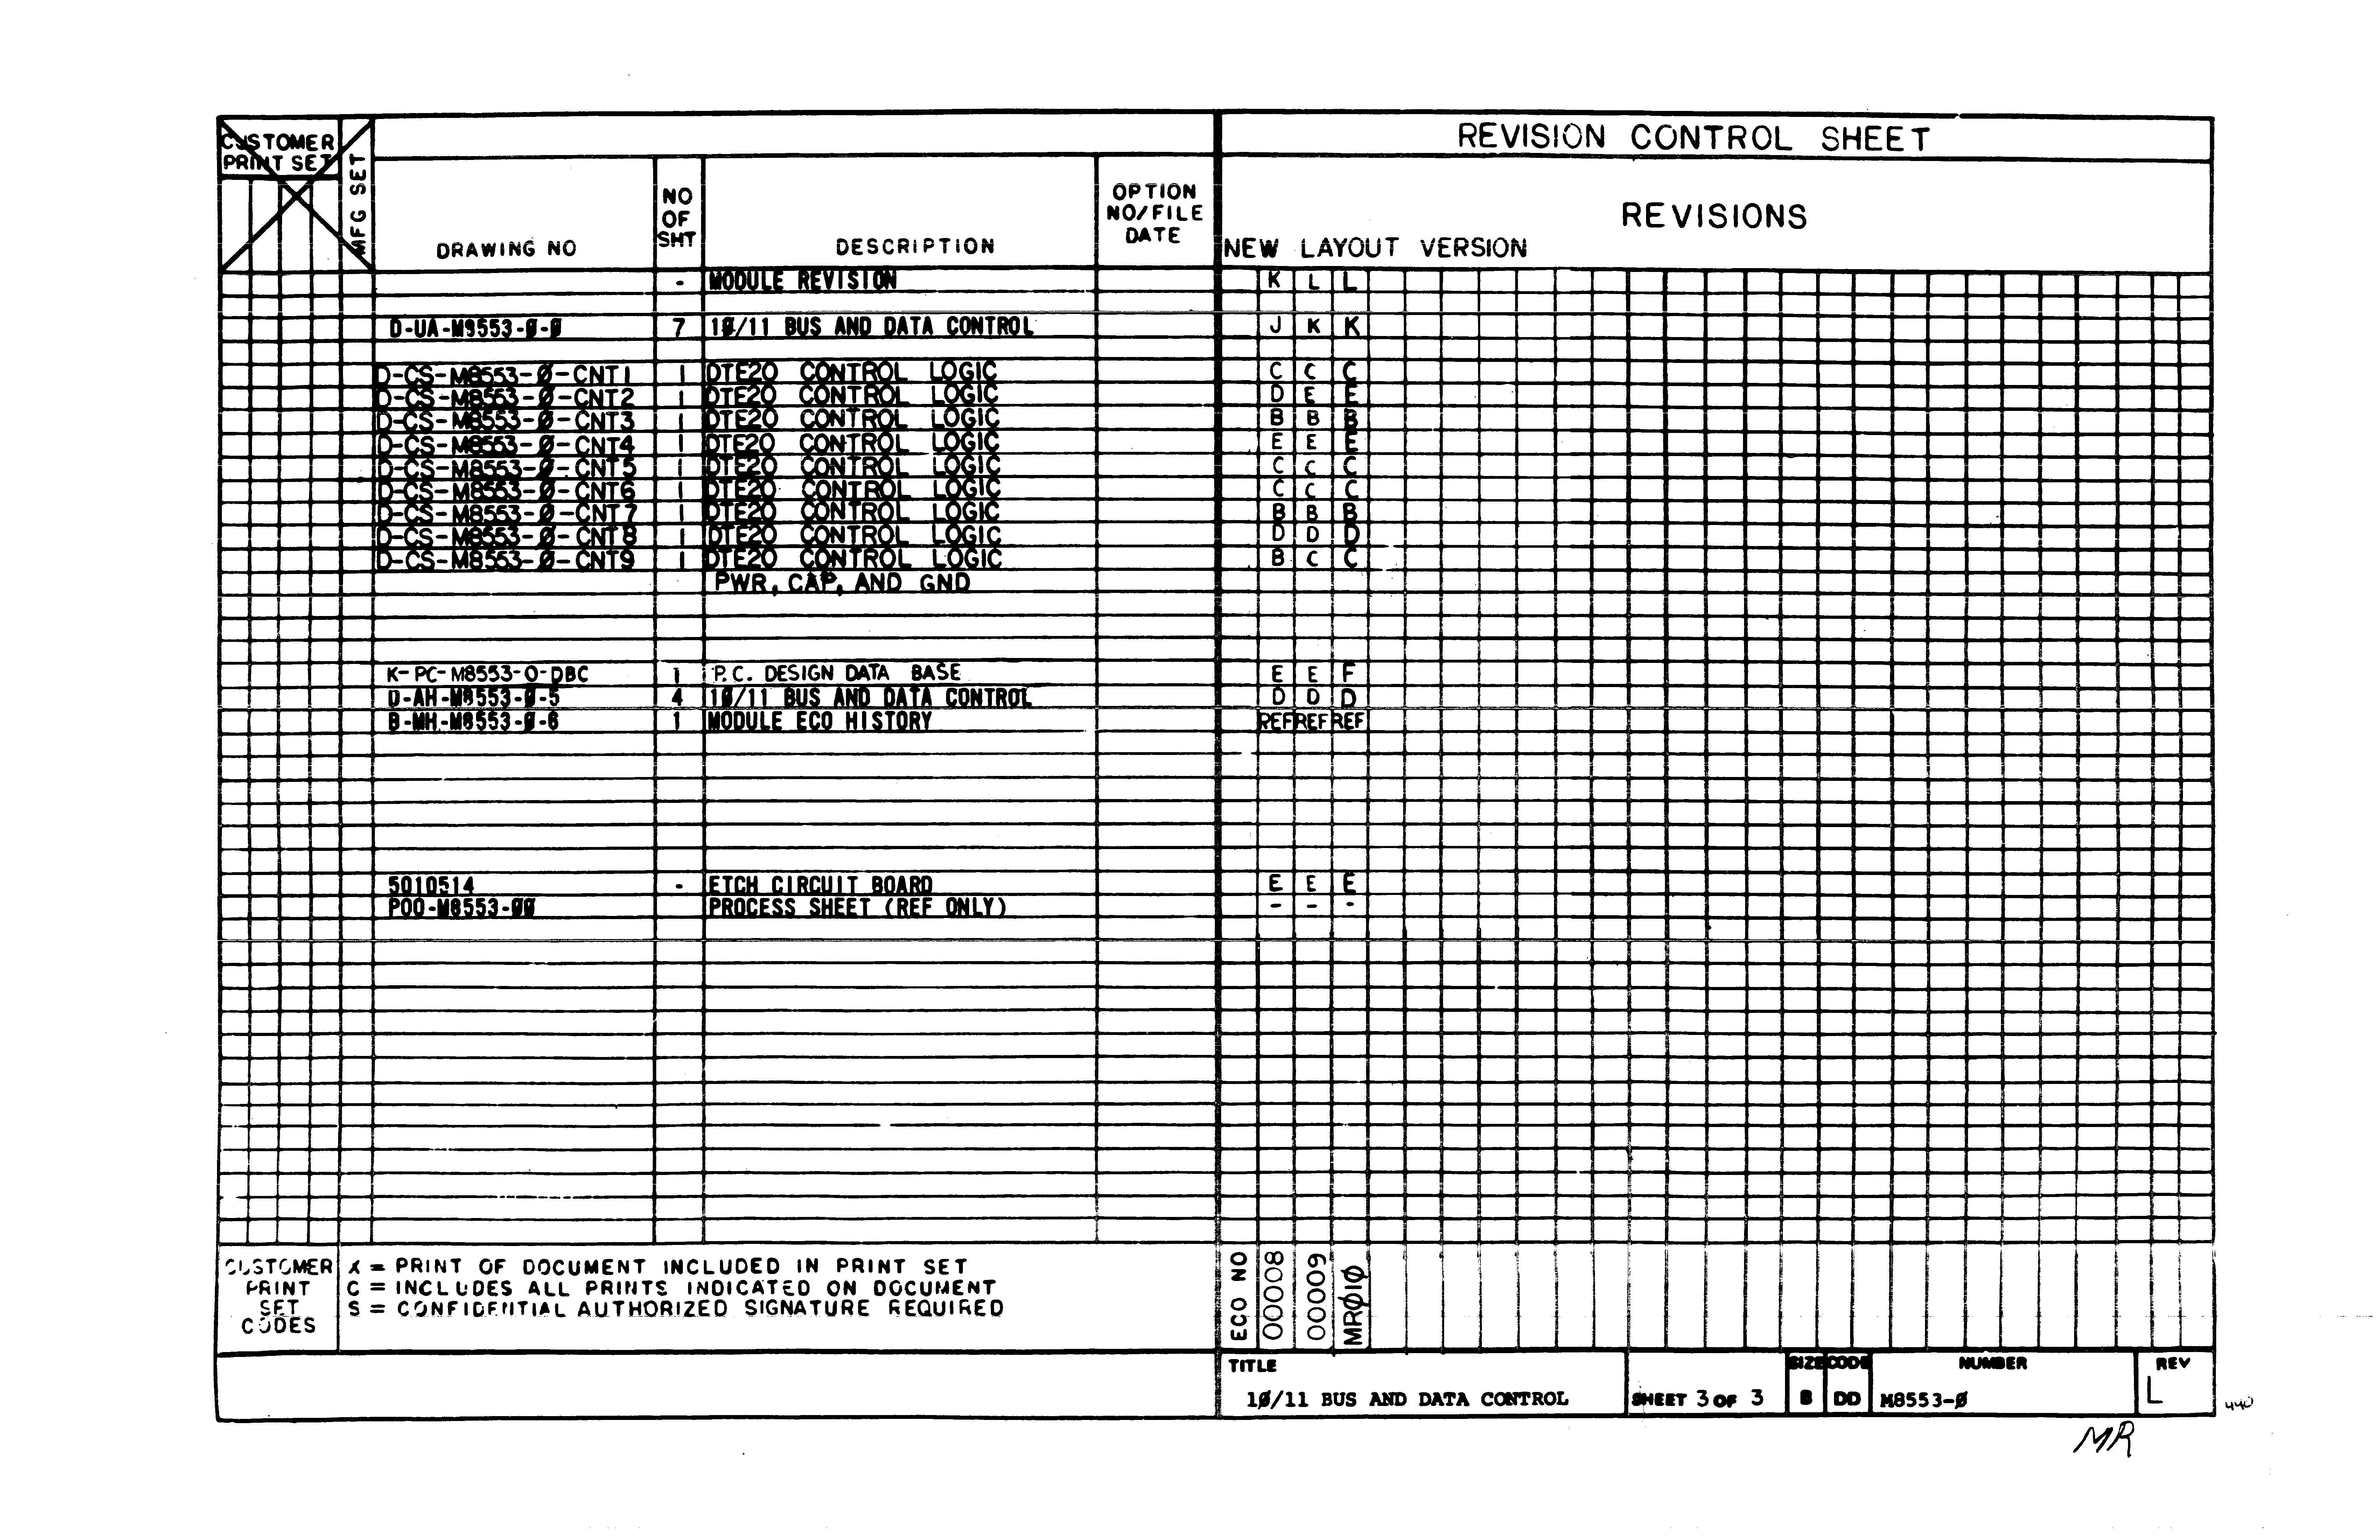 CUSTOMER PRINT SET
MFG SET
DRAWING NO
NO OF SHT
DESCRIPTION
OPTION NO/FILE DATE
REVISION CONTROL SHEET
REVISIONS
NEW LAYOUT VERSION
- MODULE REVISION K L L
D-UA-M9553-Ø-Ø 7 1Ø/11 BUS AND DATA CONTROL J K K
D-CS-M8553-Ø-CNT1 1 DTE20 CONTROL LOGIC C C C
D-CS-M8553-Ø-CNT2 1 DTE20 CONTROL LOGIC D E E
D-CS-M8553-Ø-CNT3 1 DTE20 CONTROL LOGIC B B B
D-CS-M8553-Ø-CNT4 1 DTE20 CONTROL LOGIC E E E
D-CS-M8553-Ø-CNT5 1 DTE20 CONTROL LOGIC C C C
D-CS-M8553-Ø-CNT6 1 DTE20 CONTROL LOGIC C C C
D-CS-M8553-Ø-CNT7 1 DTE20 CONTROL LOGIC B B B
D-CS-M8553-Ø-CNT8 1 DTE20 CONTROL LOGIC D D D
D-CS-M8553-Ø-CNT9 1 DTE20 CONTROL LOGIC B C C
PWR, CAP, AND GND
K-PC-M8553-O-DBC 1 P.C. DESIGN DATA BASE E E F
D-AH-M8553-Ø-5 4 1Ø/11 BUS AND DATA CONTROL D D D
B-MH-M8553-Ø-6 1 MODULE ECO HISTORY REF REF REF
5010514 - ETCH CIRCUIT BOARD E E E
P00-M8553-ØØ PROCESS SHEET (REF ONLY) - - -
CUSTOMER PRINT SET CODES
X = PRINT OF DOCUMENT INCLUDED IN PRINT SET
C = INCLUDES ALL PRINTS INDICATED ON DOCUMENT
S = CONFIDENTIAL AUTHORIZED SIGNATURE REQUIRED
ECO NO 00008 00009 MRØ1Ø
TITLE
1Ø/11 BUS AND DATA CONTROL
SHEET 3 OF 3
SIZE B
CODE DD
NUMBER M8553-Ø
REV L
440
MR